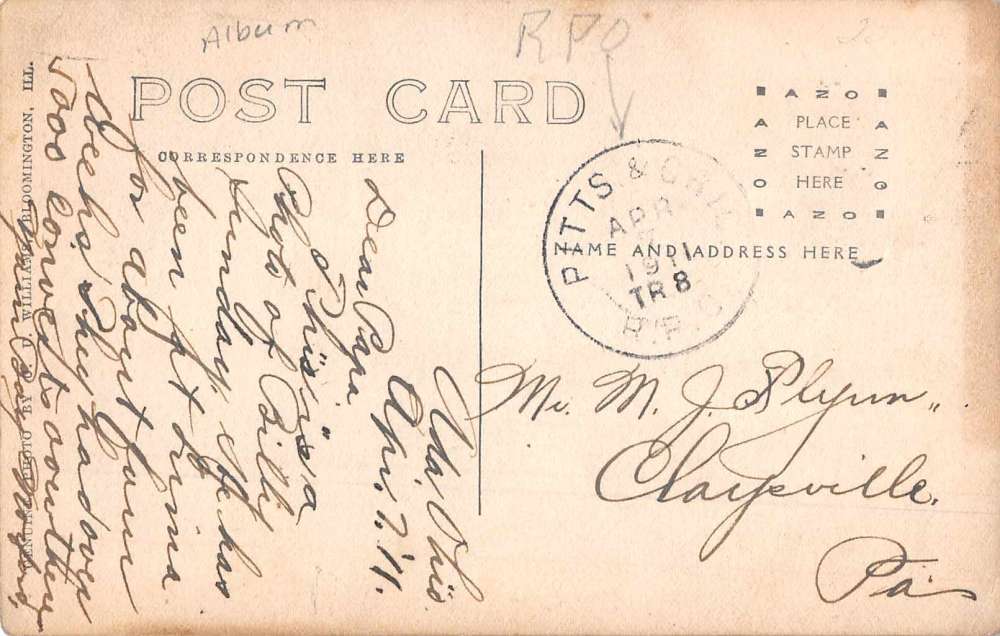 Album
RPO
POST CARD
CORRESPONDENCE HERE
AZO
PLACE
STAMP
HERE
AZO
NAME AND ADDRESS HERE
PITTS & CHI
APR
1911
TR 8
R.P.O
Ada, Ohio.
Apr. 7, '11.
Dear Papa
This is a
Photo of Billy
Sunday. He has
been at Lima
for about four
weeks. They had over
5000 converts over there
GENUINE PHOTO BY C. U. WILLIAMS, BLOOMINGTON, ILL.
Mr. M. J. Flynn,
Claysville,
Pa.